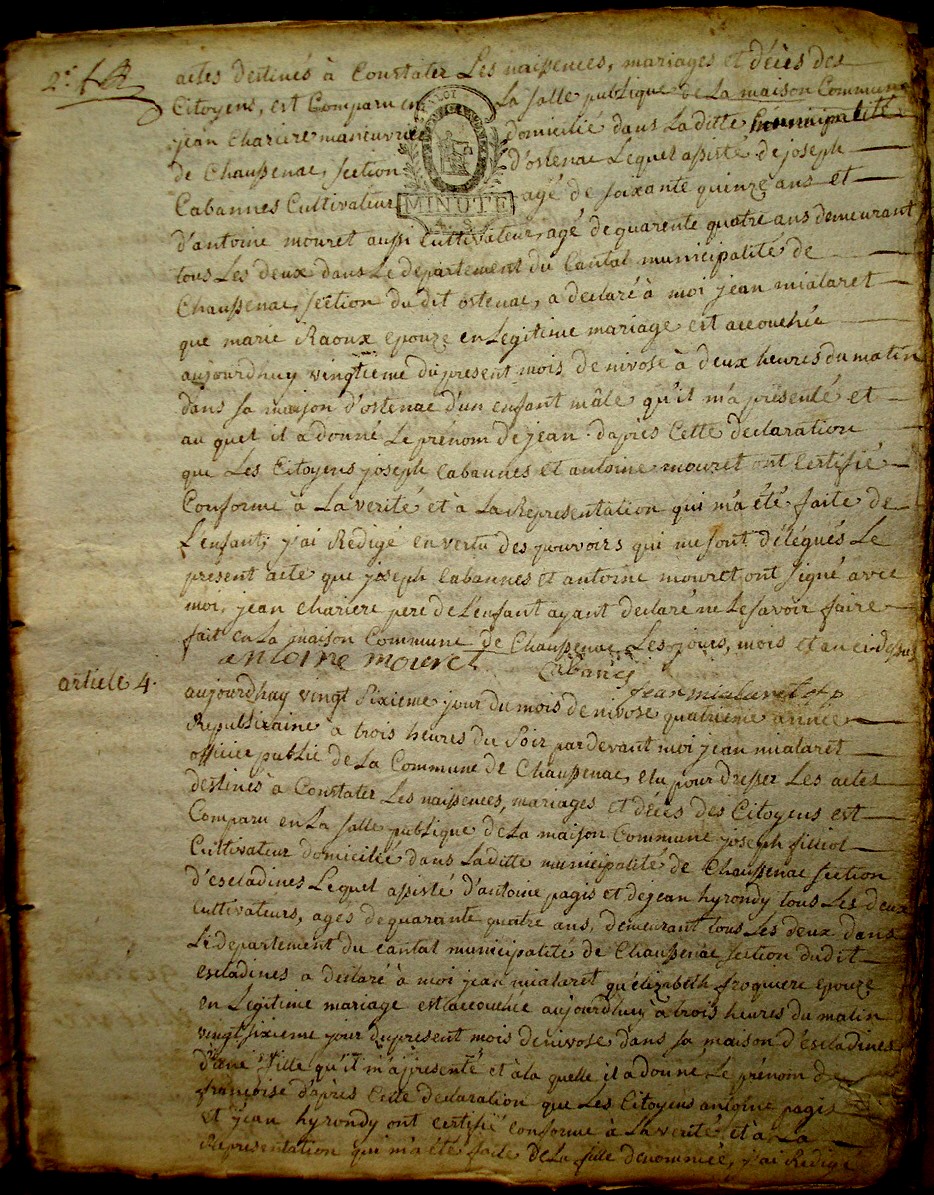 2e.
actes destinés à Constater Les naissences, mariages et décès des
Citoyens, est Comparu en La salle publique de La maison Commune
jean Chariere maneuvrier domicilié dans Laditte municipalité
de Chaussenac, section d'ostenac Lequel assisté de joseph
Cabannes Cultivateur agé de soixante quinze ans et
MINUTE
d'antoine mouret aussi Cultivateur, agé de quarente quatre ans demeurant
tous Les deux dans Le departement du Cantal municipalité de
Chaussenac, section du dit ostenac, a declaré à moi jean mialaret
que marie Raoux epouze en Legitime mariage est accouchée
aujourdhuy vingtieme du present mois de nivose à deux heures du matin
dans sa maison d'ostenac d'un enfant mâle qu'il m'a presenté et
au quel il a donné Le prénom de jean. d'après Cette declaration
que Les Citoyens joseph Cabannes et antoine mouret ont Certifié
Conforme à La verité et à La Representation qui m'a été faite de
L'enfant, j'ai Redigé en vertu des pouvoirs qui me sont délégués Le
present acte que joseph Cabannes et antoine mouret ont signé avec
moi, jean chariere pere de L'enfant ayant declaré ne Le savoir faire
fait en La maison Commune de Chaussenac Les jours, mois et an ci-dessus
antoine mouret Cabanes
jean mialaret o p
article 4.
aujourdhuy vingt Sixieme jour du mois de nivose quatrieme année
Republicaine à trois heures du Soir par devant moi jean mialaret
officier public de La Commune de Chaussenac, elu pour dresser Les actes
destinés à Constater Les naissences, mariages et décès des Citoyens est
Comparu en La salle publique de La maison Commune joseph filliol
Cultivateur domicilié dans Laditte municipalité de Chaussenac section
d'escladines Lequel assisté d'antoine pagis et de jean hyrondy tous Les deux
Cultivateurs, ages de quarante quatre ans, demeurant tous Les deux dans
Le departement du cantal municipalité de Chaussenac section dudit
escladines a declaré à moi jean mialaret qu'elizabeth froquiere epouze
en Legitime mariage est accouchée aujourdhuy à trois heures du matin
vingt sixieme jour du present mois de nivose dans sa maison d'escladines
d'une fille qu'il m'a presenté et à la quelle il a donné Le prénom de
françoise d'après Cette declaration que Les Citoyens antoine pagis
et jean hyrondy ont certifié conforme à La verité et à La
Representation qui m'a été faite de La fille denommée, j'ai Redigé